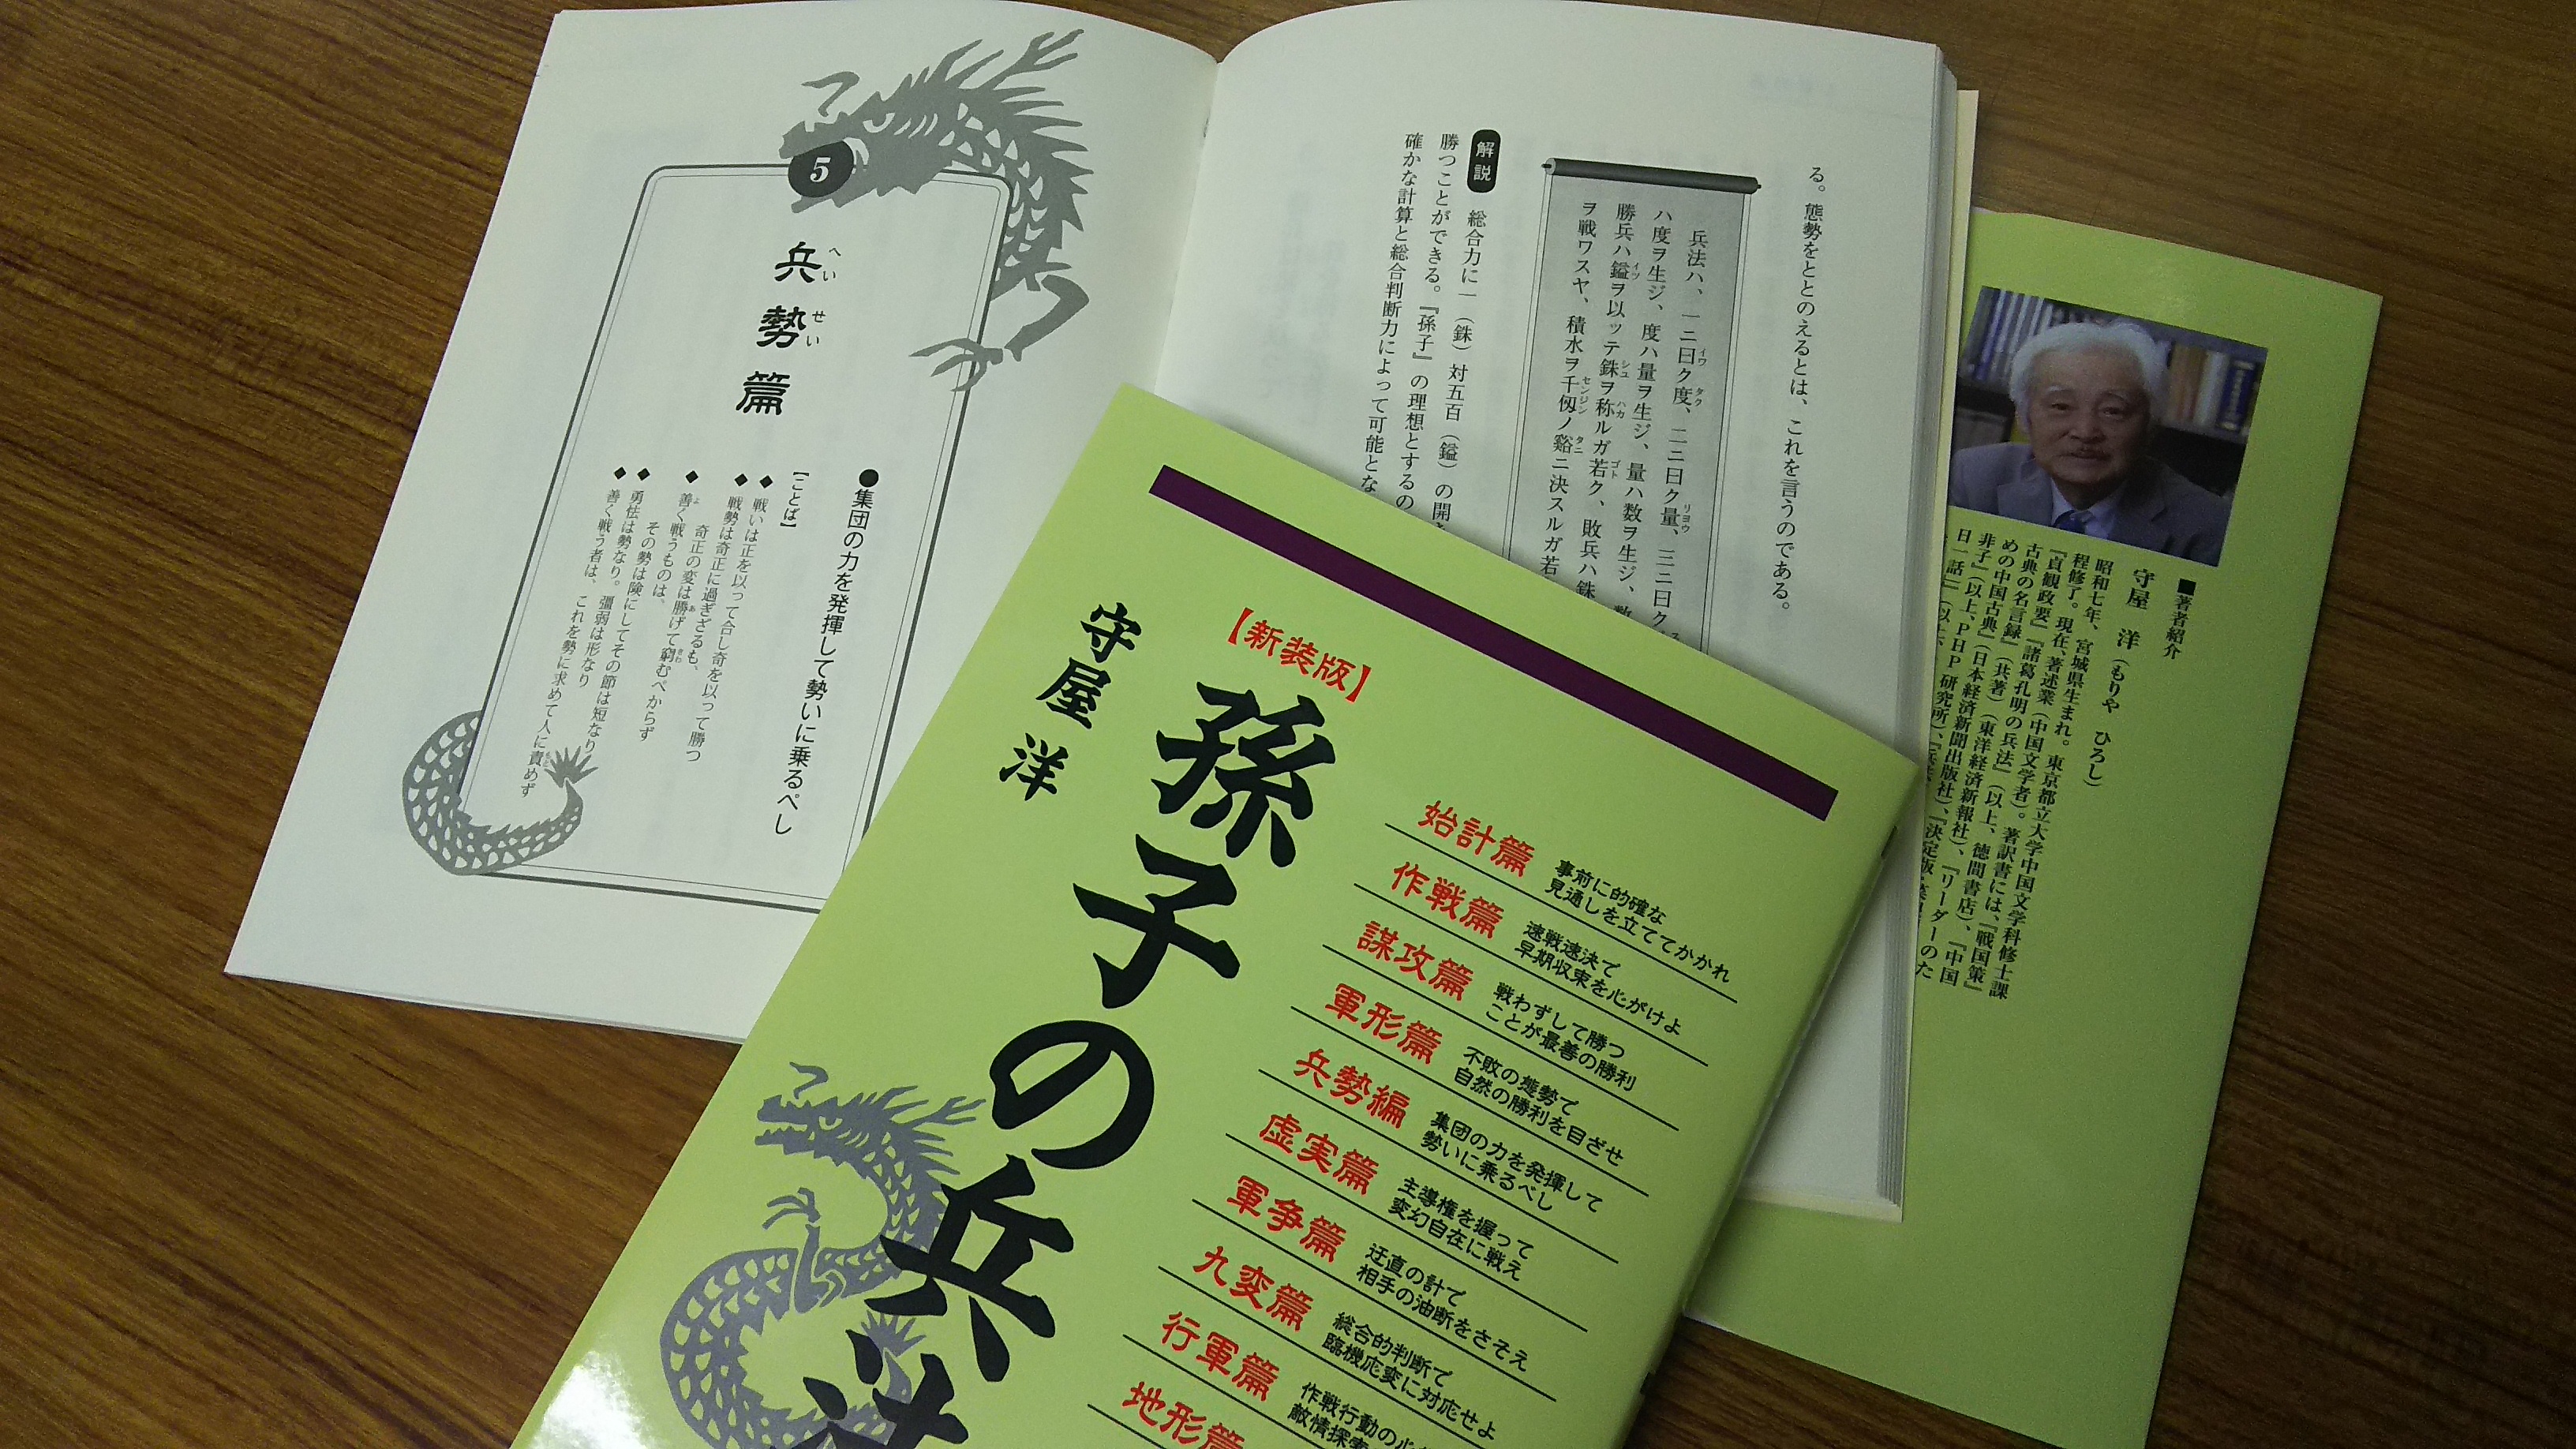 る。態勢をととのえるとは、これを言うのである。
兵法ハ、一ニ曰ク度、二ニ曰ク量、三ニ曰ク
ハ度ヲ生ジ、度ハ量ヲ生ジ、量ハ数ヲ生ジ、
勝兵ハ鎰ヲ以ッテ銖ヲ称ルガ若ク、敗兵ハ銖
ヲ戦ワスヤ、積水ヲ千仭ノ谿ニ決スルガ若
解説
総合力に一（銖）対五百（鎰）の開
勝つことができる。『孫子』の理想とするの
確かな計算と総合判断力によって可能とな
5
兵勢篇
へいせい
●集団の力を発揮して勢いに乗るべし
【ことば】
◆戦いは正を以って合し奇を以って勝つ
◆戦勢は奇正に過ぎざるも、
奇正の変は勝げて窮むべからず
◆善く戦うものは、
その勢は険にしてその節は短なり
◆勇怯は勢なり。彊弱は形なり
◆善く戦う者は、これを勢に求めて人に責めず
【新装版】
孫子の兵法
守屋 洋
始計篇
事前に的確な
見通しを立ててかかれ
作戦篇
速戦速決で
早期収束を心がけよ
謀攻篇
戦わずして勝つ
ことが最善の勝利
軍形篇
不敗の態勢で
自然の勝利を目ざせ
兵勢編
集団の力を発揮して
勢いに乗るべし
虚実篇
主導権を握って
変幻自在に戦え
軍争篇
迂直の計で
相手の油断をさそえ
九変篇
総合的判断で
臨機応変に対応せよ
行軍篇
作戦行動の心
敵情探索
地形篇
■著者紹介
守屋 洋（もりや ひろし）
昭和七年、宮城県生まれ。東京都立大学中国文学科修士課
程修了。現在、著述業（中国文学者）。著訳書には、『戦国策』
『貞観政要』『諸葛孔明の兵法』（以上、徳間書店）、『中国
古典の名言録』（共著）（東洋経済新報社）、『リーダーのた
めの中国古典』（日本経済新聞出版社）、『決定版・菜根
非子』（以上、PHP研究所）、『兵法
日一話』（以上、